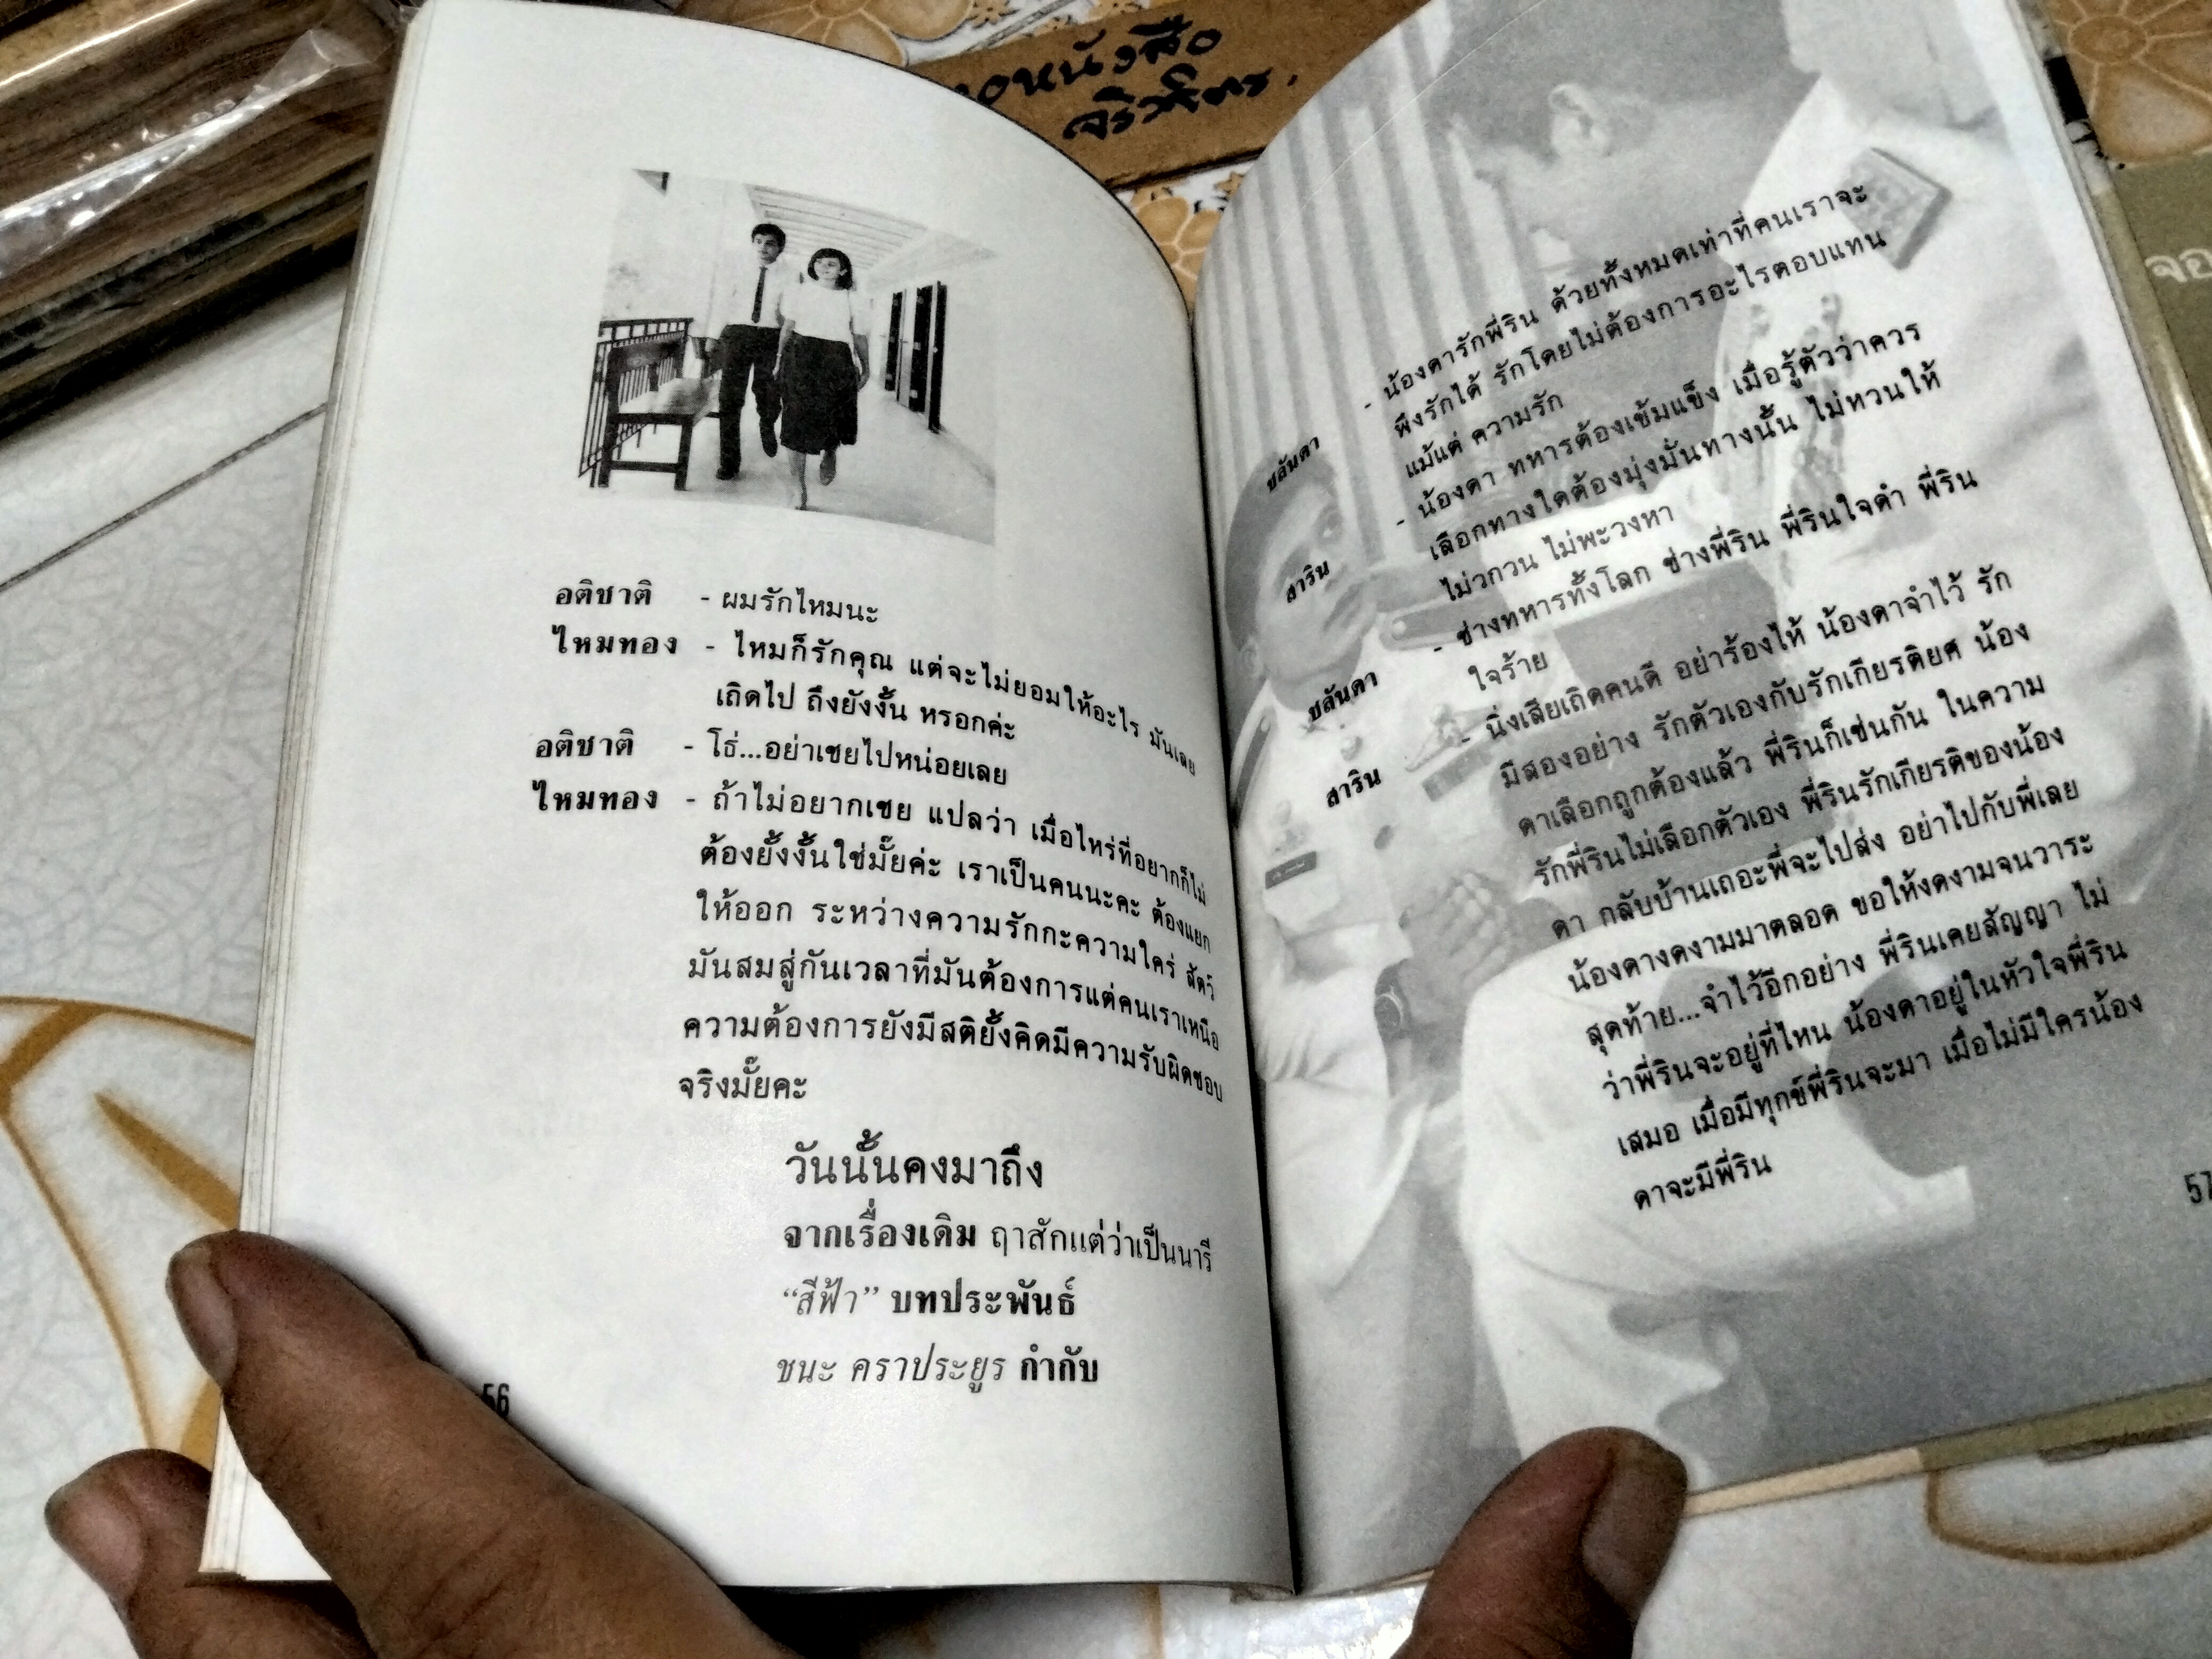 หนังสือ
อติชาติ - ผมรักไหมนะ
ไหมทอง - ไหมก็รักคุณ แต่จะไม่ยอมให้อะไร มันเลย
เถิดไป ถึงยังงั้น หรอกค่ะ
อติชาติ - โธ่...อย่าเชยไปหน่อยเลย
ไหมทอง - ถ้าไม่อยากเชย แปลว่า เมื่อไหร่ที่อยากก็ไม่
ต้องยั้งงั้นใช่มั๊ยค่ะ เราเป็นคนนะคะ ต้องแยก
ให้ออก ระหว่างความรักกะความใคร่ สัตว์
มันสมสู่กันเวลาที่มันต้องการแต่คนเราเหนือ
ความต้องการยังมีสติยั้งคิดมีความรับผิดชอบ
จริงมั๊ยคะ
วันนั้นคงมาถึง
จากเรื่องเดิม ฤาสักแต่ว่าเป็นนารี
“สีฟ้า” บทประพันธ์
ชนะ คราประยูร กำกับ
56
ชลันดา - น้องดารักพี่ริน ด้วยทั้งหมดเท่าที่คนเราจะ
พึงรักได้ รักโดยไม่ต้องการอะไรตอบแทน
แม้แต่ ความรัก
สาริน - น้องดา ทหารต้องเข้มแข็ง เมื่อรู้ตัวว่าควร
เลือกทางใดต้องมุ่งมั่นทางนั้น ไม่ทวนให้
ไม่วกวน ไม่พะวงหา
ชลันดา - ช่างทหารทั้งโลก ช่างพี่ริน พี่รินใจดำ พี่ริน
ใจร้าย
สาริน - นิ่งเสียเถิดคนดี อย่าร้องไห้ น้องดาจำไว้ รัก
มีสองอย่าง รักตัวเองกับรักเกียรติยศ น้อง
ดาเลือกถูกต้องแล้ว พี่รินก็เช่นกัน ในความ
รักพี่รินไม่เลือกตัวเอง พี่รินรักเกียรติของน้อง
ดา กลับบ้านเถอะพี่จะไปส่ง อย่าไปกับพี่เลย
น้องดางดงามมาตลอด ขอให้งดงามจนวาระ
สุดท้าย...จำไว้อีกอย่าง พี่รินเคยสัญญา ไม่
ว่าพี่รินจะอยู่ที่ไหน น้องดาอยู่ในหัวใจพี่ริน
เสมอ เมื่อมีทุกข์พี่รินจะมา เมื่อไม่มีใครน้อง
ดาจะมีพี่ริน
57